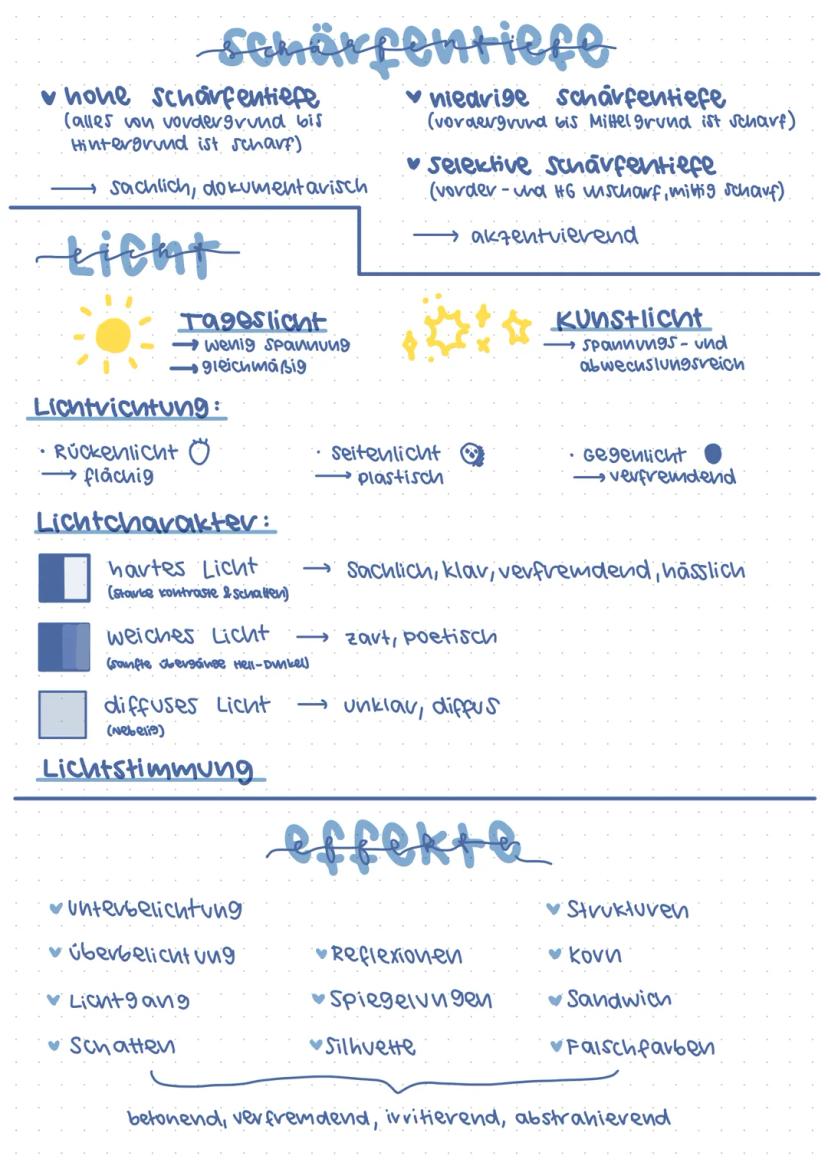 schärfentiefe
hohe schärfentiefe
(alles von vordergrund bis
Hintergrund ist scharf)
→ sachlich, dokumentarisch
niedrige schärfentiefe
(vordergrund bis Mittelgrund ist scharf)
selektive schärfentiefe
(vorder- und HG unscharf, mittig scharf)
→ akzentuierend
Licht
Tageslicht
→ wenig spannung
→ gleichmäßig
Kunstlicht
→ spannungs- und
abwechslungsreich
Lichtrichtung:
· Rückenlicht
→ flächig
· Seitenlicht
→ plastisch
· Gegenlicht
→ verfremdend
Lichtcharakter:
hartes Licht → Sachlich, klar, verfremdend, hässlich
(starke kontraste & schatten)
weiches Licht → zart, poetisch
(sanfte übergänge Hell-Dunkel)
diffuses Licht → unklar, diffus
(nebelig)
Lichtstimmung
effekte
unterbelichtung
überbelichtung
Lichtgang
Schatten
Reflexionen
Spiegelungen
Silhuette
Strukturen
Korn
Sandwich
Falschfarben
betonend, verfremdend, irritierend, abstrahierend